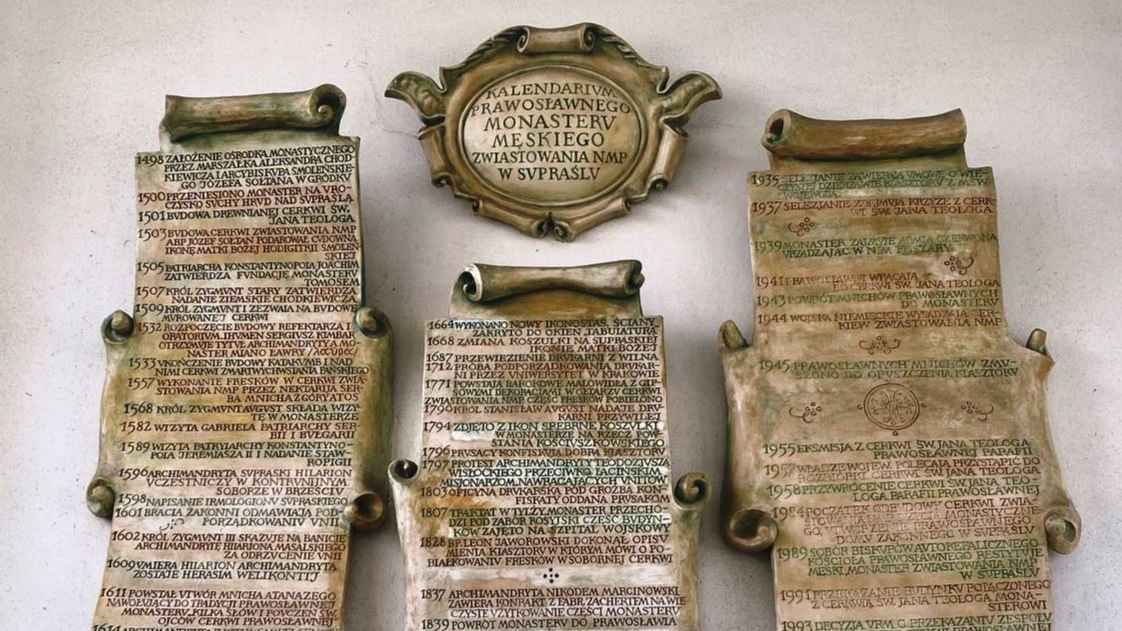 KALENDARIVM
PRAWOSŁAWNEGO
MONASTERV
MĘSKIEGO
ZWIASTOWANIA NMP
W SVPRAŚLV
1498 ZAŁOŻENIE OŚRODKA MONASTYCZNEGO
PRZEZ MARSZAŁKA ALEKSANDRA CHOD
KIEWICZA I ARCYBISKVPA SMOLEŃSKIE-
GO JÓZEFA SOŁTANA W GRÓDKV
1500 PRZENIESIONO MONASTER NA VRO-
CZYSKO SVCHY HRVD NAD SVPRAŚLĄ
1501 BVDOWA DREWNIANEJ CERKWI ŚW.
JANA TEOLOGA
1503 BVDOWA CERKWI ZWIASTOWANIA NMP
ABP JÓZEF SOŁTAN PODAROWAŁ CVDOWNĄ
IKONĘ MATKI BOŻEJ HODIGITRII SMOLEŃ
SKIEJ
1505 PATRIARCHA KONSTANTYNOPOLA JOACHIM
ZATWIERDZA FVNDACJĘ MONASTERV
TOMOSEM
1507 KRÓL ZYGMVNT STARY ZATWIERDZA
NADANIE ZIEMSKIE CHODKIEWICZA
1509 KRÓL ZYGMVNT I ZEZWALA NA BVDOWĘ
MVROWANEJ CERKWI
1532 ROZPOCZĘCIE BVDOWY REFEKTARZA I
ORATORIVM. IHVMEN SERGIVSZ KIMBAR
OTRZYMVJE TYTVŁ ARCHIMANDRYTY A MO
NASTER MIANO ŁAWRY
1533 VKOŃCZENIE BVDOWY KATAKVMB I NAD
NIMI CERKWI ZMARTWYCHWSTANIA PAŃSKIEGO
1557 WYKONANIE FRESKÓW W CERKWI ZWIA-
STOWANIA NMP PRZEZ NEKTARIJA SER-
BA MNICHA Z GÓRY ATOS
1568 KRÓL ZYGMVNT AVGVST SKŁADA WIZY-
TĘ W MONASTERZE
1582 WIZYTA GABRIELA PATRIARCHY SER-
BII I BVŁGARII
1589 WIZYTA PATRYIARCHY KONSTANTYNO-
POLA JEREMIASZA II I NADANIE STAW-
ROPIGII
1596 ARCHIMANDRYTA SVPRASKI HILARION
VCZESTNICZY W KONTRVNIJNYM
SOBORZE W BRZEŚCIV
1598 NAPISANIE IRMOLOGIONV SVPRASKIEGO
1601 BRACIA ZAKONNI ODMAWIAJĄ POD-
PORZĄDKOWANIV VNII
1602 KRÓL ZYGMVNT III SKAZVJE NA BANICJĘ
ARCHIMANDRYTĘ HILARIONA MASALSKIEGO
ZA ODRZVCENIE VNII
1609 VMIERA HILARION ARCHIMANDRYTĄ
ZOSTAJE HERASIM WELIKONTIJ
1611 POWSTAŁ VTWÓR MNICHA ATANAZEGO
NAWOŁVJĄCY DO TRADYCJI PRAWOSŁAWNEJ
MONASTERV, KILKA SŁÓW I POVCZEŃ ŚW.
OJCÓW CERKWI PRAWOSŁAWNEJ
1614
1664 WYKONANO NOWY IKONOSTAS, ŚCIANY
ZAKRYTO DO OKIEN TABVLATVRĄ
1668 ZMIANA KOSZVLKI NA SVPRASKIEJ
IKONIE MATKI BOŻEJ
1687 PRZEWIEZIENIE DRVKARNI Z WILNA
1712 PRÓBA PODPORZĄDKOWANIA DRVKAR-
NI PRZEZ VNIWERSYTET W KRAKOWIE
1771 POWSTAŁA BAROKOWE MALOWIDŁA Z GIP-
SOWYMI DEKORACJAMI W OŁTARZY CERKWI
ZWIASTOWANIA NMP CZĘŚĆ FRESKÓW POBIELONO
1790 KRÓL STANISŁAW AVGVST NADAJE DRV
KARNI PRZYWILEJ
1794 ZDJĘTO Z IKON SREBRNE KOSZVLKI
W MONASTERZE NA RZECZ POW-
STANIA KOŚCIVSZKOWSKIEGO
1796 PRVSACY KONFISKVJĄ DOBRA KLASZTORV
1797 PROTEST ARCHIMANDRYTY TEODOZJVSZA
WISŁOCKIEGO PRZECIWKO ŁACIŃSKIM
MISJONARZOM NAWRACAJĄCYCH VNITÓW
1803 OFICYNA DRVKARSKA POD GROŹBĄ KON-
FISKATY ODDANA PRVSAKOM
1807 TRAKTAT W TYLŻY, MONASTER PRZECHO-
DZI POD ZABÓR ROSYJSKI CZĘŚĆ BVDYN-
KÓW ZAJĘTO NA SZPITAL WOJSKOWY
1828 BP. LEON JAWOROWSKI DOKONAŁ OPISV
MIENIA KLASZTORV W KTÓRYM MÓWI O PO-
BIAŁKOWANIV FRESKÓW W SOBORNEJ CERKWI
1837 ARCHIMANDRYTA NIKODEM MARCINOWSKI
ZAWIERA KONTRAKT Z FABR. ZACHERTEM NA WIE
CZYSTE VŻYTKOWANIE CZĘŚCI MONASTERV
1839 POWRÓT MONASTERV DO PRAWOSŁAWIA
1935 SELEZIANIE ZAWIERAJĄ VMOWĘ O WIE-
1937 SELEZIANIE ZDEJMVJĄ KRZYŻE Z CERK-
WI ŚW. JANA TEOLOGA
1939 MONASTER ZAJMVJE ARMIA CZERWONA
VRZĄDZAJĄC W NIM
1941
ŚW. JANA TEOLOGA
1943 POWRÓT MNICHÓW PRAWOSŁAWNYCH
DO MONASTERV
1944 WOJSKA NIEMIECKIE WYSADZAJĄ CER-
KIEW ZWIASTOWANIA NMP
1945 PRAWOSŁAWNYCH MNICHÓW ZMV-
SZONO DO OPVSZCZENIA KLASZTORV
1955 EKSMISJA Z CERKWI ŚW. JANA TEOLOGA
PRAWOSŁAWNEJ PARAFII
1957 WŁADZE WOJEW. POLECAJĄ PRZYSTĄPIĆ DO
ROZBIÓRKI CERKWI ŚW. JANA TEOLOGA
1958 PRZYWRÓCENIE CERKWI ŚW. JANA TEO-
LOGA PARAFII PRAWOSŁAWNEJ
1984 POCZĄTEK ODBVDOWY CERKWI ZWIA-
DOMV ZAKONNEGO W SVPRAŚLV
1989 SOBÓR BISKVPÓW AVTOKEFALICZNEGO
KOŚCIOŁA PRAWOSŁAWNEGO RESTYTVVJE
MĘSKI MONASTER ZWIASTOWANIA NMP
W SVPRAŚLV
1991 PRZEKAZANIE BVDYNKV POŁĄCZONEGO
Z CERKWIĄ ŚW. JANA TEOLOGA MONA-
STEROWI
1993 DECYZJA VRM O PRZEKAZANIV ZESPOŁV